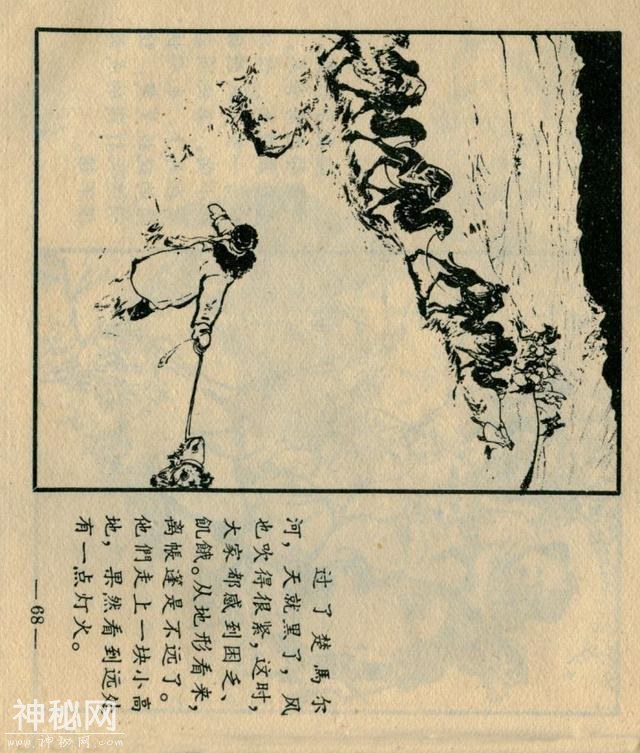 过了楚馬尔
河，天就黑了，风
也吹得很紧，这时，
大家都感到困乏、
飢餓。从地形看来，
离帳蓬是不远了。
他們走上一块小高
地，果然看到远处
有一点灯火。
— 68 —
神秘网